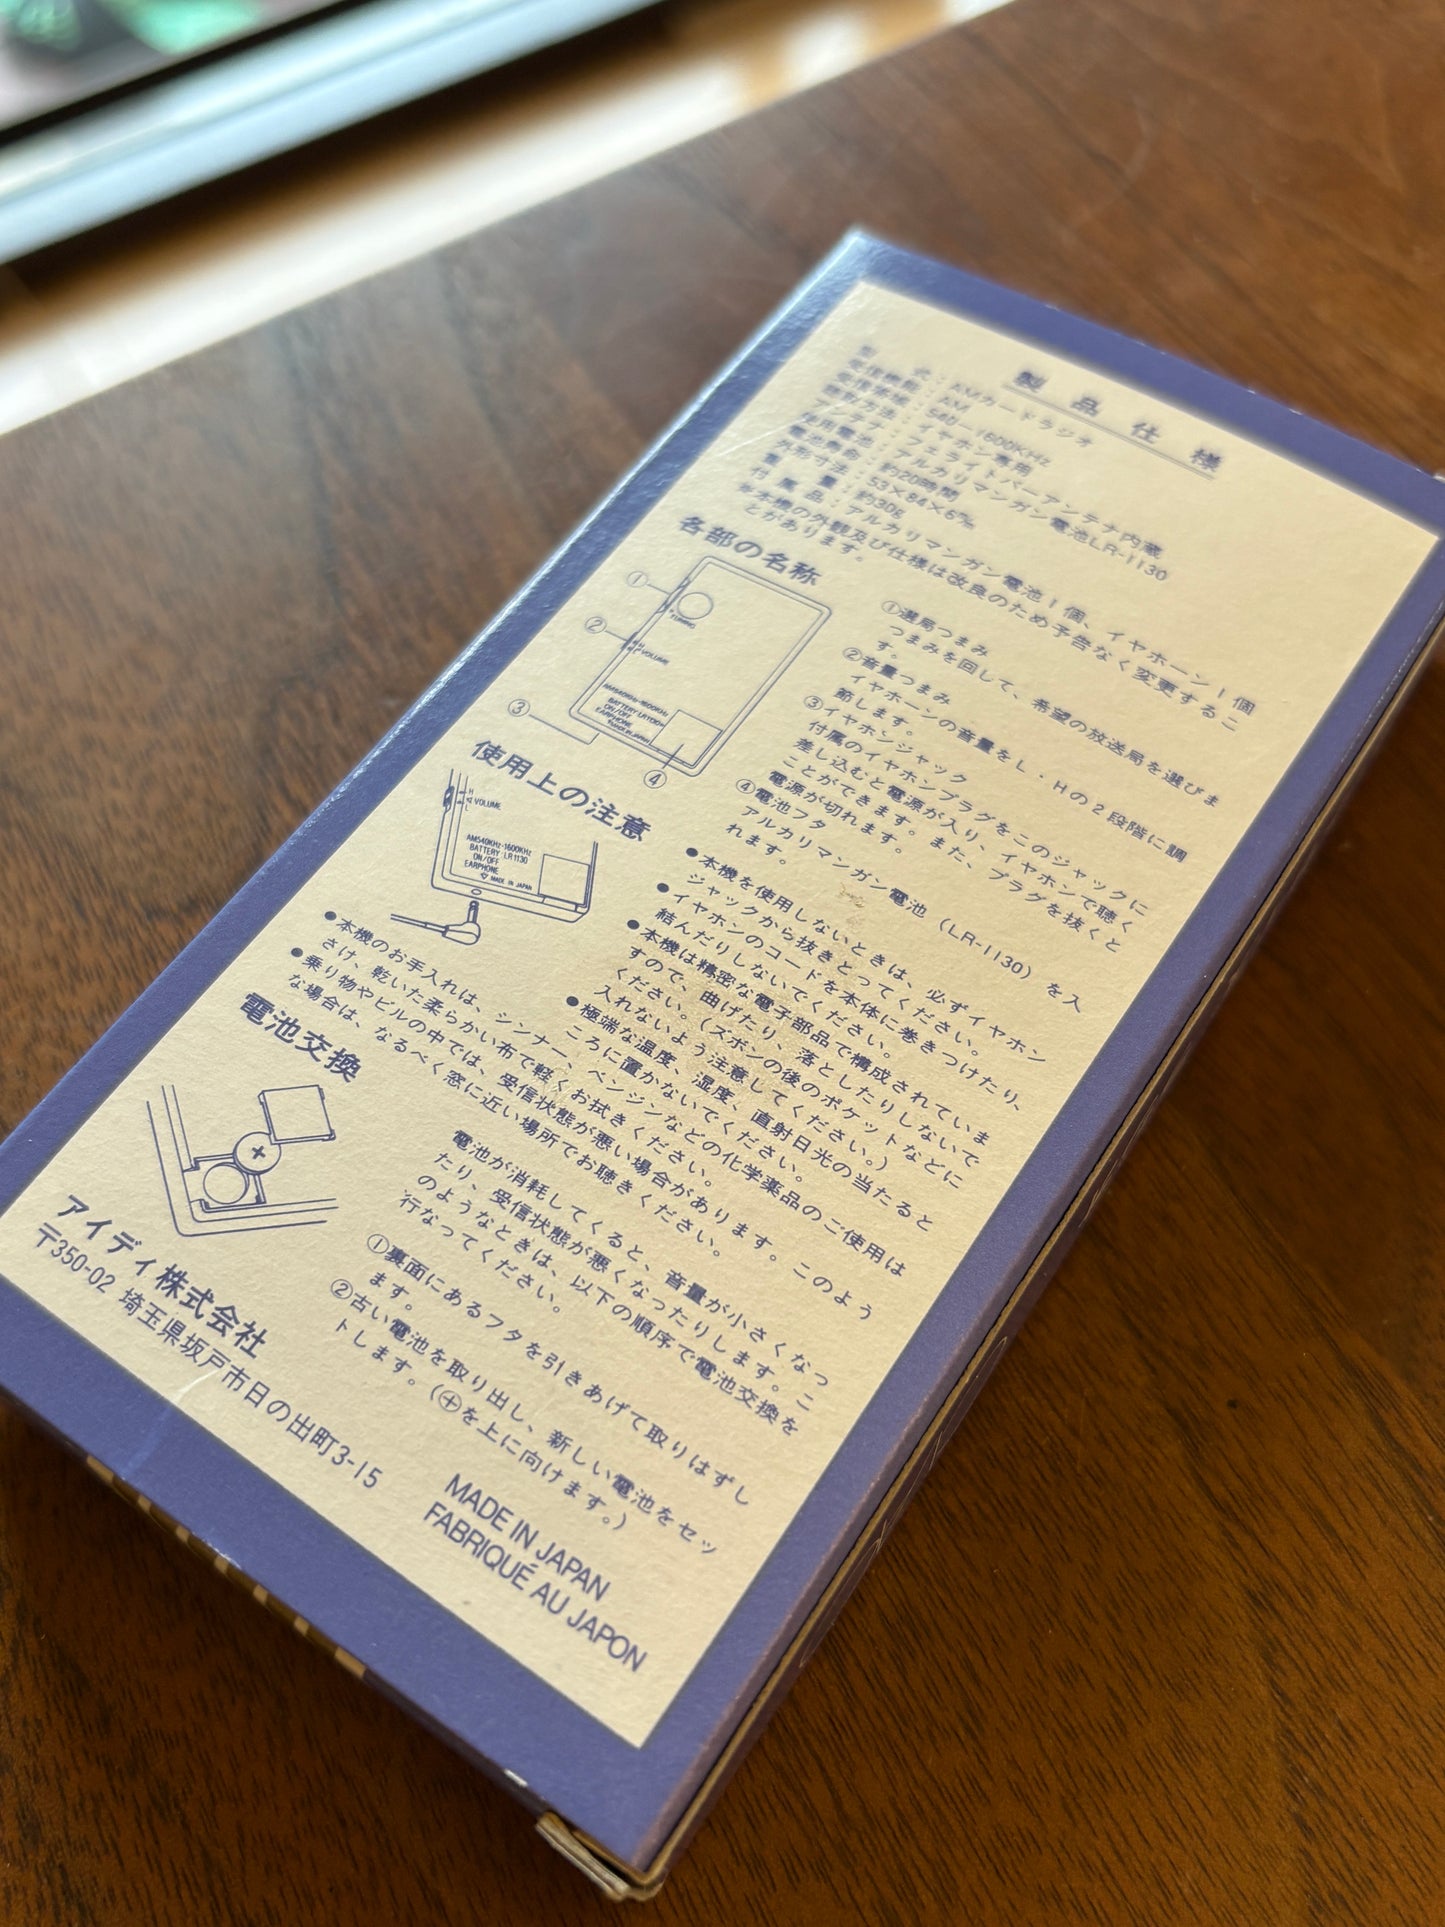 製品仕様
型式：AMカードラジオ
受信機能：AM
受信帯域：540－1600KHz
聴取方法：イヤホン専用
アンテナ：フェライトバーアンテナ内蔵
使用電池：アルカリマンガン電池LR-1130
電池寿命：約20時間
外形寸法：53×84×6㎜
重量：約30g
付属品：アルカリマンガン電池1個、イヤホーン1個
※本機の外観及び仕様は改良のため予告なく変更するこ
とがあります。
各部の名称
①
②
③
④
TUNING
H
L
VOLUME
AM540KHz-1600KHz
BATTERY LR1130
ON/OFF
EARPHONE
MADE IN JAPAN
①選局つまみ
つまみを回して、希望の放送局を選びま
す。
②音量つまみ
イヤホーンの音量をL・Hの2段階に調
節します。
③イヤホンジャック
付属のイヤホンプラグをこのジャックに
差し込むと電源が入り、イヤホンで聴く
ことができます。また、プラグを抜くと
電源が切れます。
④電池フタ
アルカリマンガン電池（LR-1130）を入
れます。
使用上の注意
H
L
VOLUME
AM540KHz-1600KHz
BATTERY LR1130
ON/OFF
EARPHONE
MADE IN JAPAN
●本機を使用しないときは、必ずイヤホン
ジャックから抜きとってください。
●イヤホンのコードを本体に巻きつけたり、
結んだりしないでください。
●本機は精密な電子部品で構成されていま
すので、曲げたり、落としたりしないで
ください。（ズボンの後のポケットなどに
入れないよう注意してください。）
●極端な温度、湿度、直射日光の当たると
ころに置かないでください。
●本機のお手入れは、シンナー、ベンジンなどの化学薬品のご使用は
さけ、乾いた柔らかい布で軽くお拭きください。
●乗り物やビルの中では、受信状態が悪い場合があります。このよう
な場合は、なるべく窓に近い場所でお聴きください。
電池交換
電池が消耗してくると、音量が小さくなっ
たり、受信状態が悪くなったりします。こ
のようなときは、以下の順序で電池交換を
行なってください。
①裏面にあるフタを引きあげて取りはずし
ます。
②古い電池を取り出し、新しい電池をセッ
トします。（⊕を上に向けます。）
アイディ株式会社
〒350-02 埼玉県坂戸市日の出町3-15
MADE IN JAPAN
FABRIQUÉ AU JAPON